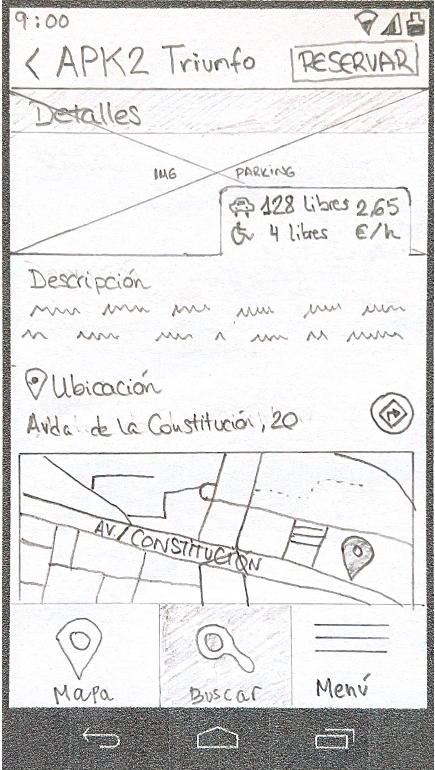 9:00
< APK2 Triunfo RESERVAR
Detalles
IMG PARKING
128 libres 2,65
4 libres €/h
Descripción
Ubicación
Avda de la Constitución, 20
AV./CONSTITUCIÓN
Mapa Buscar Menú